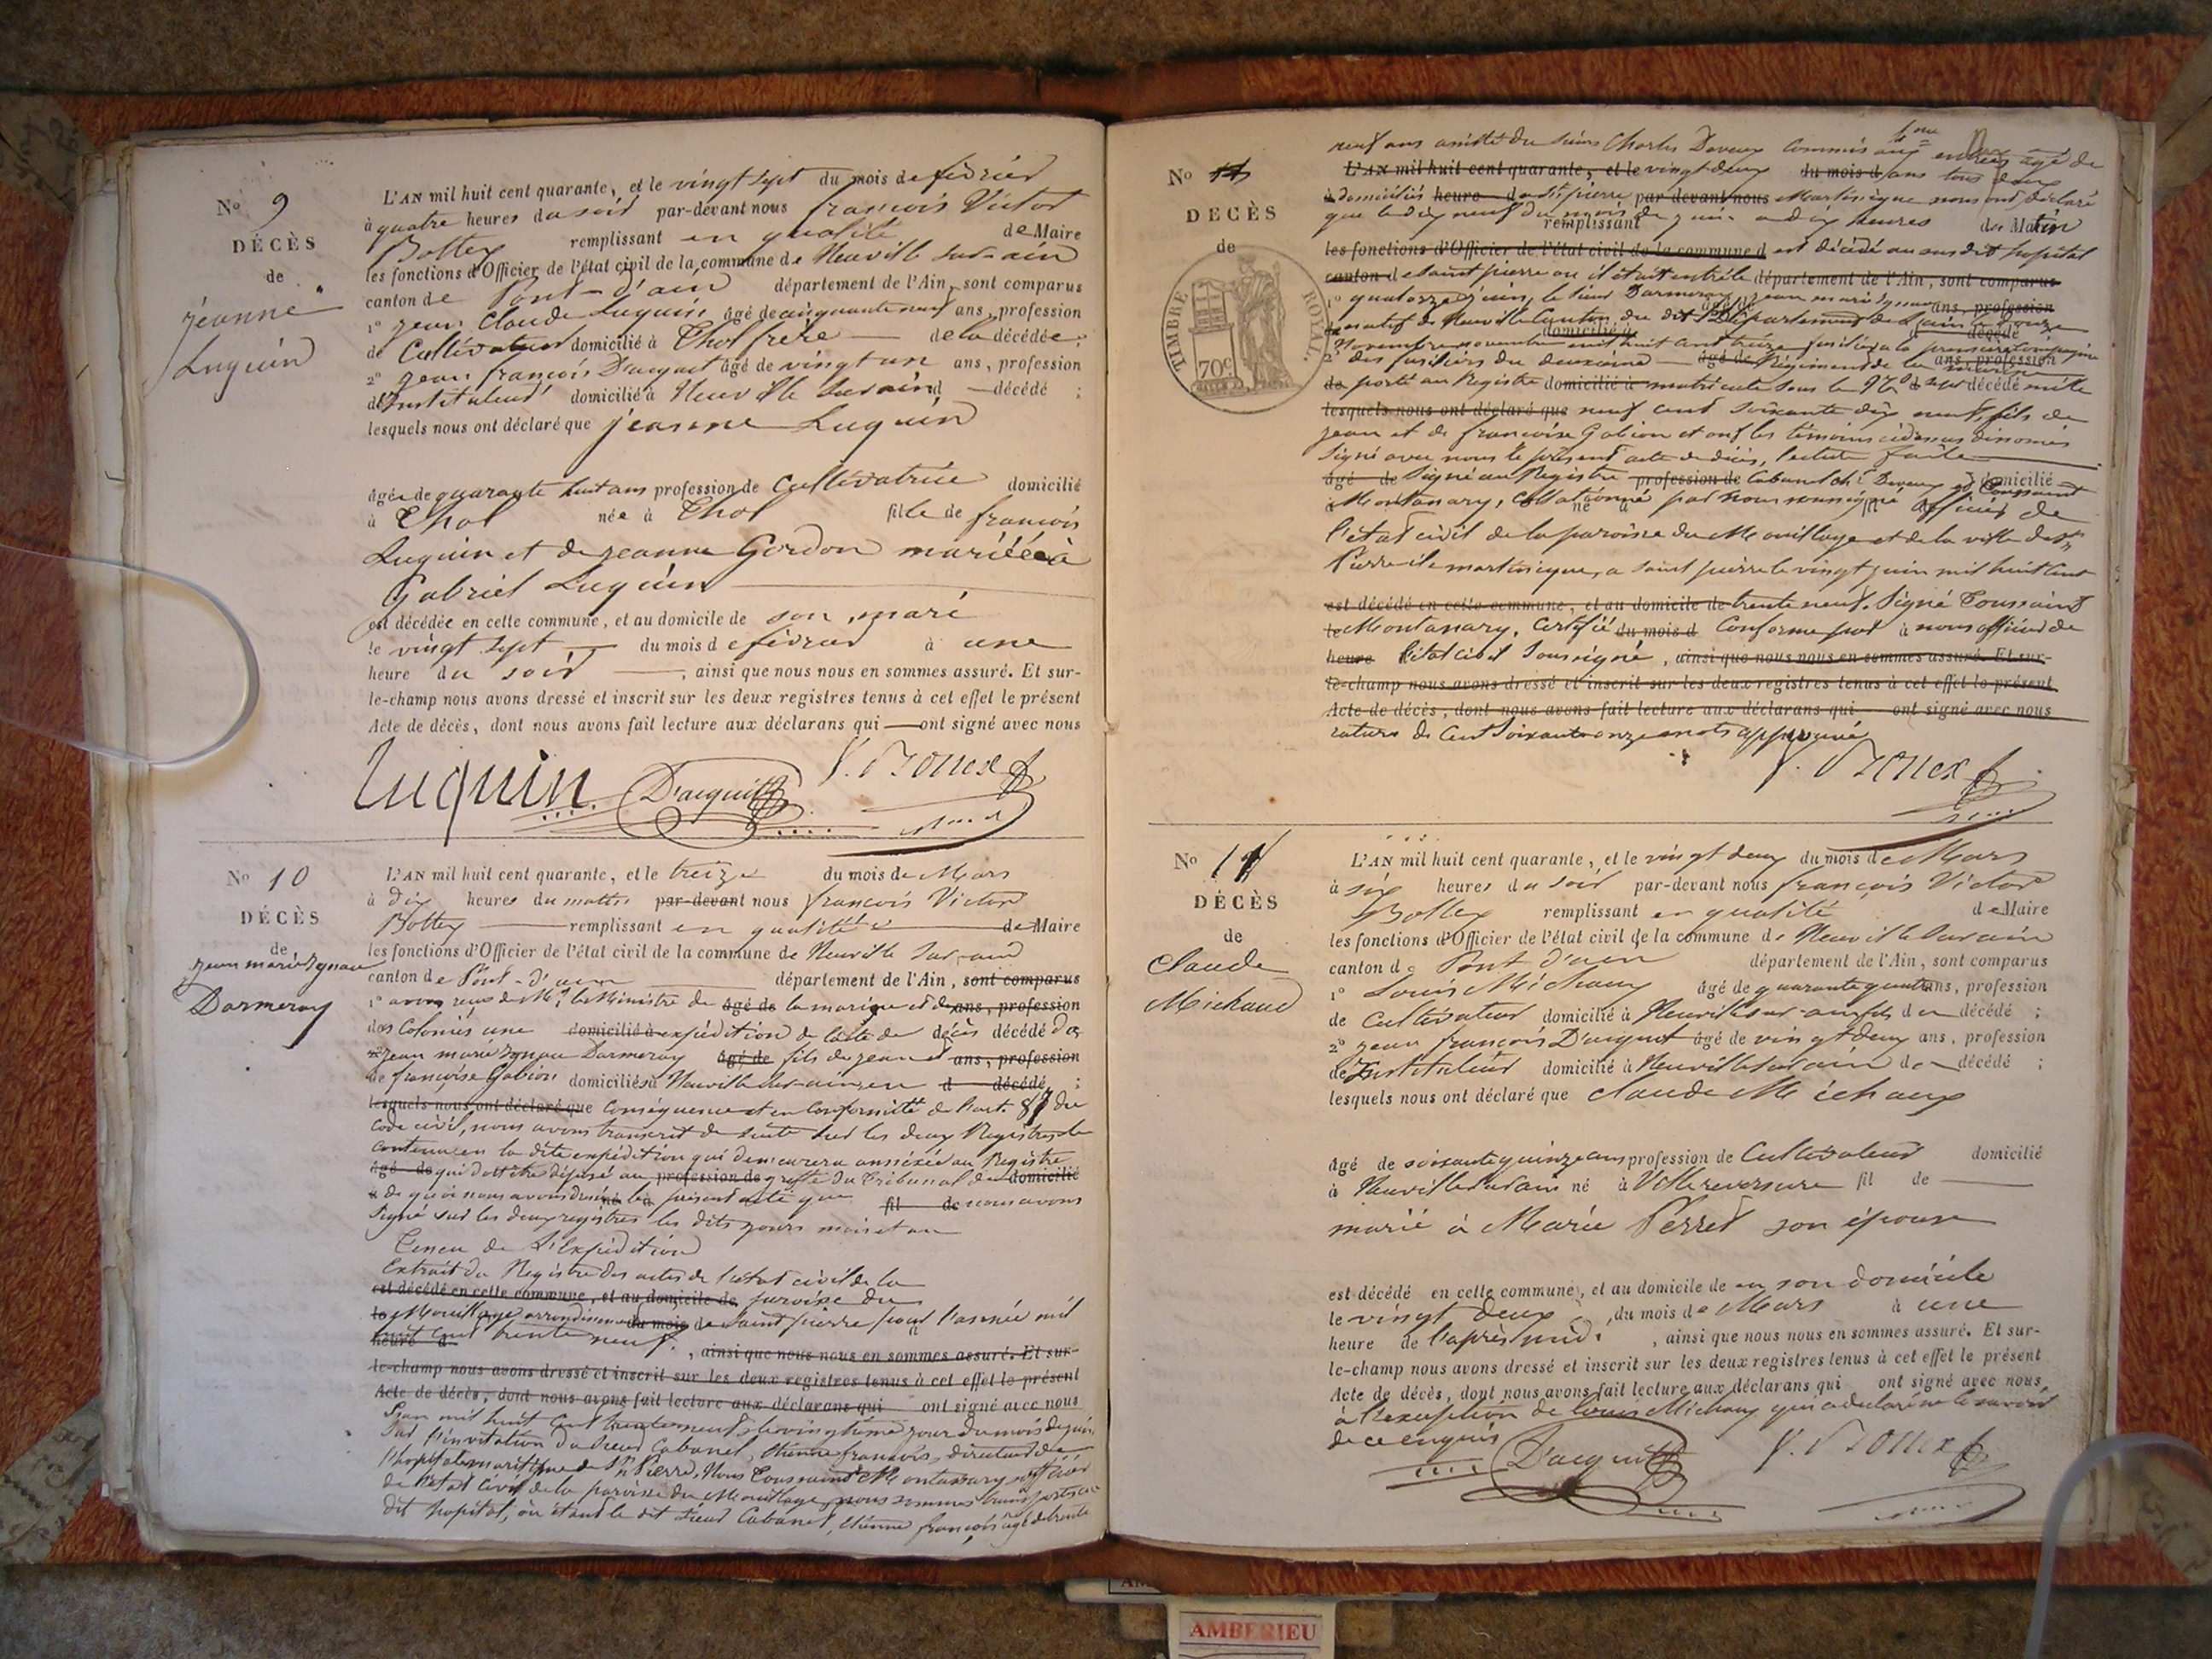 No 9
DÉCÈS
de
jéanne
Luguin
L'AN mil huit cent quarante, et le vingt sept du mois de février
à quatre heures du soir par-devant nous françois Victor
Bollex remplissant en qualité de Maire
les fonctions d'Officier de l'état civil de la commune de Neuville sur-ain
canton de Pont-d'ain département de l'Ain, sont comparus
1o jean Claude Luguin âgé de cinquante neuf ans, profession
de Cultivateur domicilié à Thol frère de la décédée;
2o jean françois D'acquet âgé de vingt un ans, profession
d'Instituteur domicilié à Neuville sur ain d décédé ;
lesquels nous ont déclaré que jéanne Luguin
âgée de quarante huit ans profession de Cultivatrice domicilié
à Thol née à Thol fille de françois
Luguin et de jeanne Gordon mariée à
Gabriel Luguin
est décédée en cette commune, et au domicile de son mari
le vingt sept du mois de février à une
heure du soir , ainsi que nous nous en sommes assuré. Et sur-
le-champ nous avons dressé et inscrit sur les deux registres tenus à cet effet le présent
Acte de décès, dont nous avons fait lecture aux déclarans qui ont signé avec nous
Luguin D'acquit V. Bollex
No 10
DÉCÈS
de
jean marie
Darmeray
L'AN mil huit cent quarante, et le treize du mois de Mars
à dix heures du matin par-devant nous françois Victor
Bollex remplissant en qualité de Maire
les fonctions d'Officier de l'état civil de la commune de Neuville sur-ain
canton de Pont-d'ain département de l'Ain, sont comparus
1o avons reçu de Mr le Ministre de âgé de la marine et de ans, profession
des Colonies une domicilié à expédition de l'acte de décès décédé de
jean marie Darmeray âgé de fils de jean et ans, profession
de françoise Gabion domiciliés à Neuville sur-ain en d décédé ;
lesquels nous ont déclaré que conséquence et en conformité de l'art. 87 du
Code civil, nous avons transcrit de suite sur les deux Registres le
contenu en la dite expédition qui demeurera annéxée au Registre
âgé de qui doit être déposé au profession de greffe du Tribunal domicilié
à de quoi nous avons dressé né à le présent acte que fil de nous avons
signé sur les deux registres les dits jours mois et an
Teneur de l'Expédition
Extrait du Registre des actes de l'état civil de la
est décédé en cette commune, et au domicile de paroisse du
le Mouillage arrondissement du mois de Saint pierre pour l'année mil
heure d huit cent trente neuf. , ainsi que nous nous en sommes assuré. Et sur-
le-champ nous avons dressé et inscrit sur les deux registres tenus à cet effet le présent
Acte de décès, dont nous avons fait lecture aux déclarans qui ont signé avec nous
L'an mil huit cent trente neuf le vingtième jour du mois de juin,
Sur l'invitation du Sieur Cabanel, étienne françois, directeur de
l'hopital maritime de St Pierre, Nous Toussaint Montanary officier
de l'état civil de la paroisse du Mouillage, nous sommes transportés au
dit hopital, où étant le dit sieur Cabanel, étienne françois âgé de trente
No 11
DÉCÈS
de
TIMBRE ROYAL.
70c
neuf ans assisté du sieur Charles Deveux Commis aux entrées âgé de
L'AN mil huit cent quarante, et le vingt deux du mois d ans tous deux
à domiciliés heure d St pierre par-devant nous Martinique nous ont déclaré
que le dix neuf du mois de juin à dix heures remplissant du Matin
les fonctions d'Officier de l'état civil de la commune d est décédé au susdit hopital
canton de Saint pierre où il était entré le département de l'Ain, sont comparus
1o quatorze juin, le sieur Darmeray jean marie ans, profession
natif de Neuville Canton du dit Département de l'ain
novembre mil huit cent treize fusilier à la première compagnie
2o des fusiliers du deuxième âgé de Régiment de la marine ans, profession
de porté au Registre domicilié à matricule sous le No décédé mille
lesquels nous ont déclaré que neuf cent soixante dix neuf, fils de
jean et de françoise Gabion et ont les témoins cidessus dénomés
signé avec nous le présent acte de décès, lecture faite
âgé de Signé au Registre profession de Cabanel Deveux et Toussaint domicilié
à Montanary, Collationné né à par nous soussigné officier de
l'état civil de la paroisse du Mouillage et de la ville de St
Pierre ile martinique, a saint pierre le vingt juin mil huit cent
est décédé en cette commune, et au domicile de trente neuf. Signé Toussaint
le Montanary, Certifié du mois d Conforme par à nous officier de
heure l'état civil Soussigné , ainsi que nous nous en sommes assuré. Et sur-
le-champ nous avons dressé et inscrit sur les deux registres tenus à cet effet le présent
Acte de décès, dont nous avons fait lecture aux déclarans qui ont signé avec nous
rature de Cent soixante onze mots approuvé
V. Bollex
No 11
DÉCÈS
de
Claude
Michaud
L'AN mil huit cent quarante, et le vingt deux du mois de Mars
à six heures du soir par-devant nous françois Victor
Bollex remplissant en qualité de Maire
les fonctions d'Officier de l'état civil de la commune de Neuville sur ain
canton de Pont d'ain département de l'Ain, sont comparus
1o Louis Michaux âgé de quarante quatre ans, profession
de Cultivateur domicilié à Neuville sur-ain fils du décédé ;
2o jean françois D'acquet âgé de vingt deux ans, profession
d'Instituteur domicilié à Neuville sur ain d décédé ;
lesquels nous ont déclaré que claude Michaux
âgé de soixante quinze ans profession de Cultivateur domicilié
à Neuville sur ain né à Villereversure fil de
marié à Marie Perret son épouse
est décédé en cette commune, et au domicile de en son domicile
le vingt deux du mois de Mars à une
heure de l'après midi , ainsi que nous nous en sommes assuré. Et sur-
le-champ nous avons dressé et inscrit sur les deux registres tenus à cet effet le présent
Acte de décès, dont nous avons fait lecture aux déclarans qui ont signé avec nous
à l'exception de Louis Michaux qui a déclaré ne le savoir
de ce enquis
D'acquit V. Bollex
AMBERIEU